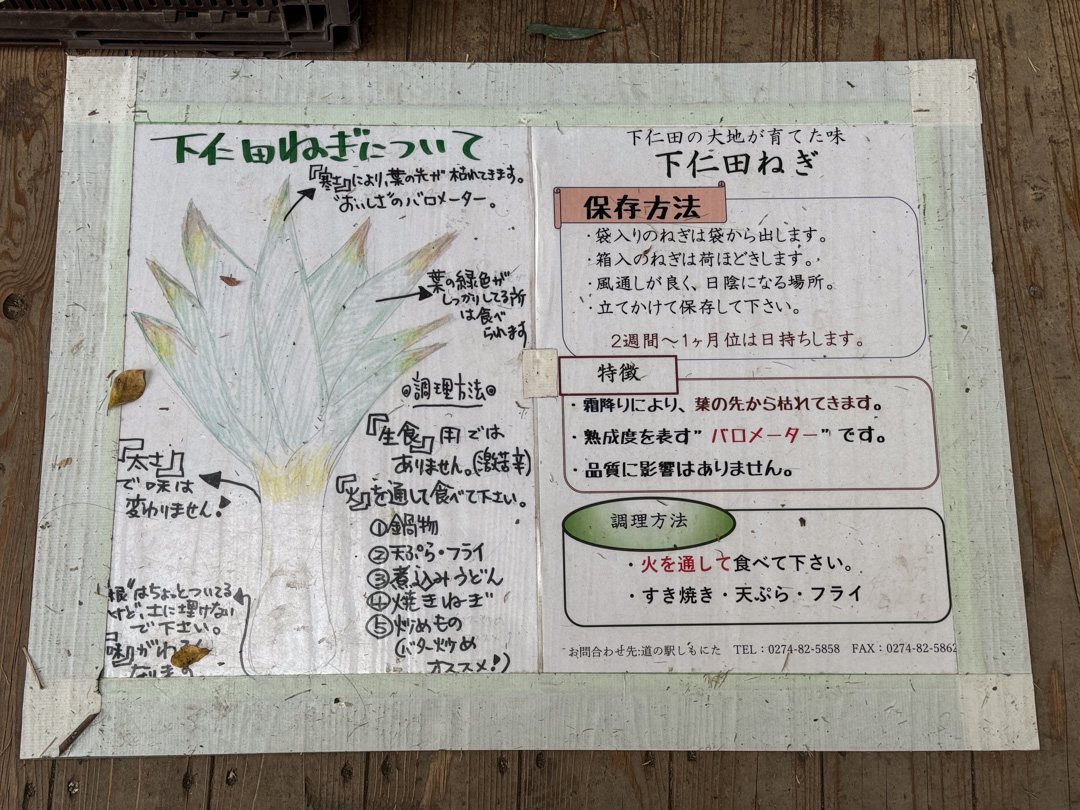 下仁田ねぎについて
『寒さ』により、葉の先が枯れてきます。
"おいしさ"のバロメーター。
葉の緑色が
しっかりしてる所
は食べ
られます
◎調理方法◎
『生食』用では
ありません。(激苦辛)
『火』を通して食べて下さい。
①鍋物
②天ぷら・フライ
③煮込みうどん
④焼きねぎ
⑤炒めもの
(バター炒め
オススメ!)
『太さ』
で味は
変わりません!
根"はちょっとついてる
けど、土に埋けない
で下さい。
『味』がわるく
なります
下仁田の大地が育てた味
下仁田ねぎ
保存方法
・袋入りのねぎは袋から出します。
・箱入のねぎは荷ほどきします。
・風通しが良く、日陰になる場所。
・立てかけて保存して下さい。
2週間～1ヶ月位は日持ちします。
特徴
・霜降りにより、葉の先から枯れてきます。
・熟成度を表す"バロメーター"です。
・品質に影響はありません。
調理方法
・火を通して食べて下さい。
・すき焼き・天ぷら・フライ
お問合わせ先:道の駅しもにた TEL:0274-82-5858 FAX:0274-82-5862